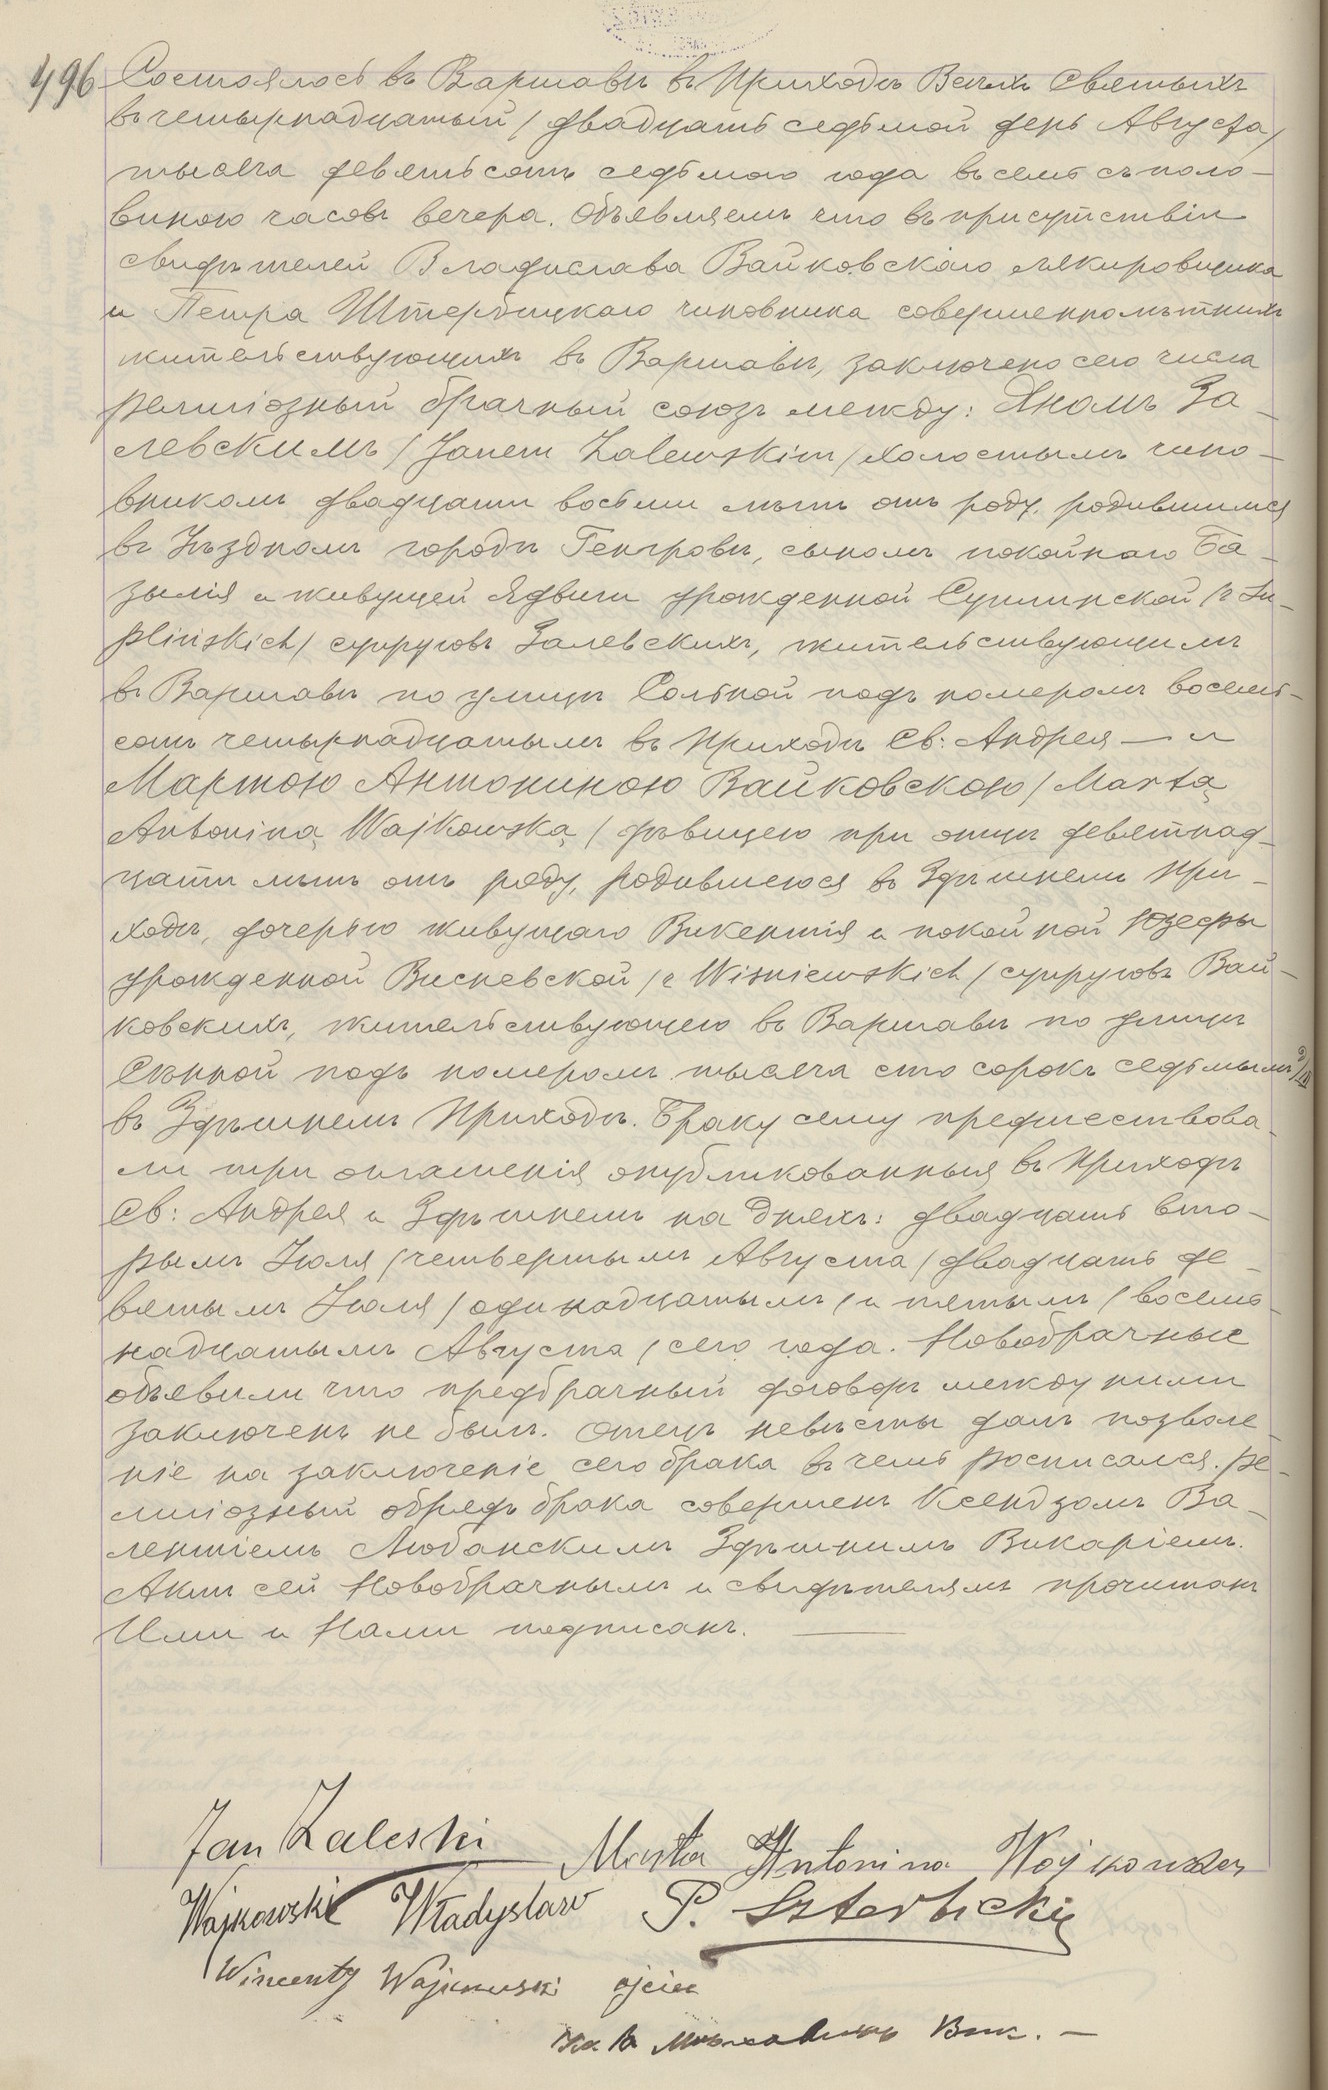 496
Состоялось въ Варшавѣ въ Приходѣ Всѣхъ Святыхъ
въ четырнадцатый / двадцать седьмой день Августа /
тысяча девятьсотъ седьмого года въ семь съ поло-
виною часовъ вечера. Объявляемъ что въ присутствіи
свидѣтелей Владислава Вайковскаго лякировщика
и Петра Штербицкаго чиновника совершеннолѣтнихъ
жительствующихъ въ Варшавѣ, заключено сего числа
религіозный брачный союзъ между: Яномъ За-
левскимъ / Janem Zalewskim / холостымъ чино-
вникомъ двадцати восьми лѣтъ отъ роду, родившимся
въ Уѣздномъ городѣ Генгровѣ, сыномъ покойнаго Ба-
зылія и живущей Ядвиги урожденной Суплинской / z Su-
plińskich / супруговъ Залевскихъ, жительствующимъ
въ Варшавѣ по улицѣ Сольной подъ номеромъ восемь-
сотъ четырнадцатымъ въ Приходѣ Св: Андрея — и
Мартою Антониною Вайковскою / Martą
Antoniną Wajkowską / дѣвицею при отцѣ девятнад-
цати лѣтъ отъ роду, родившеюся въ Здѣшнемъ При-
ходѣ, дочерью живущаго Викентія и покойной Юзефы
урожденной Висневской / z Wisniewskich / супруговъ Вай-
ковскихъ, жительствующею въ Варшавѣ по улицѣ
Сѣнной подъ номеромъ тысяча сто сорокъ седьмымъ
въ Здѣшнемъ Приходѣ. Браку сему предшествова-
ли три оглашенія опубликованныя въ Приходѣ
Св: Андрея и Здѣшнемъ на дняхъ: двадцать вто-
рымъ Іюля / четвертымъ Августа / двадцать де-
вятымъ Іюля / одинадцатымъ / и пятымъ / восемь-
надцатымъ Августа / сего года. Новобрачные
объявили что предбрачный договоръ между ними
заключенъ не былъ. Отецъ невѣсты далъ позволе-
ніе на заключеніе сего брака въ чемъ росписался. Ре-
лигіозный обрядъ брака совершенъ Ксендзомъ Ва-
лентіемъ Любанскимъ Здѣшнимъ Викаріемъ.
Актъ сей Новобрачнымъ и свидѣтелямъ прочитанъ
Ими и Нами подписанъ.
Jan Zaleski Marta Antonina Wojkowska
Wajkowski Władysław P. Szterbicki
Wincenty Wajkowski ojciec
Вик. —